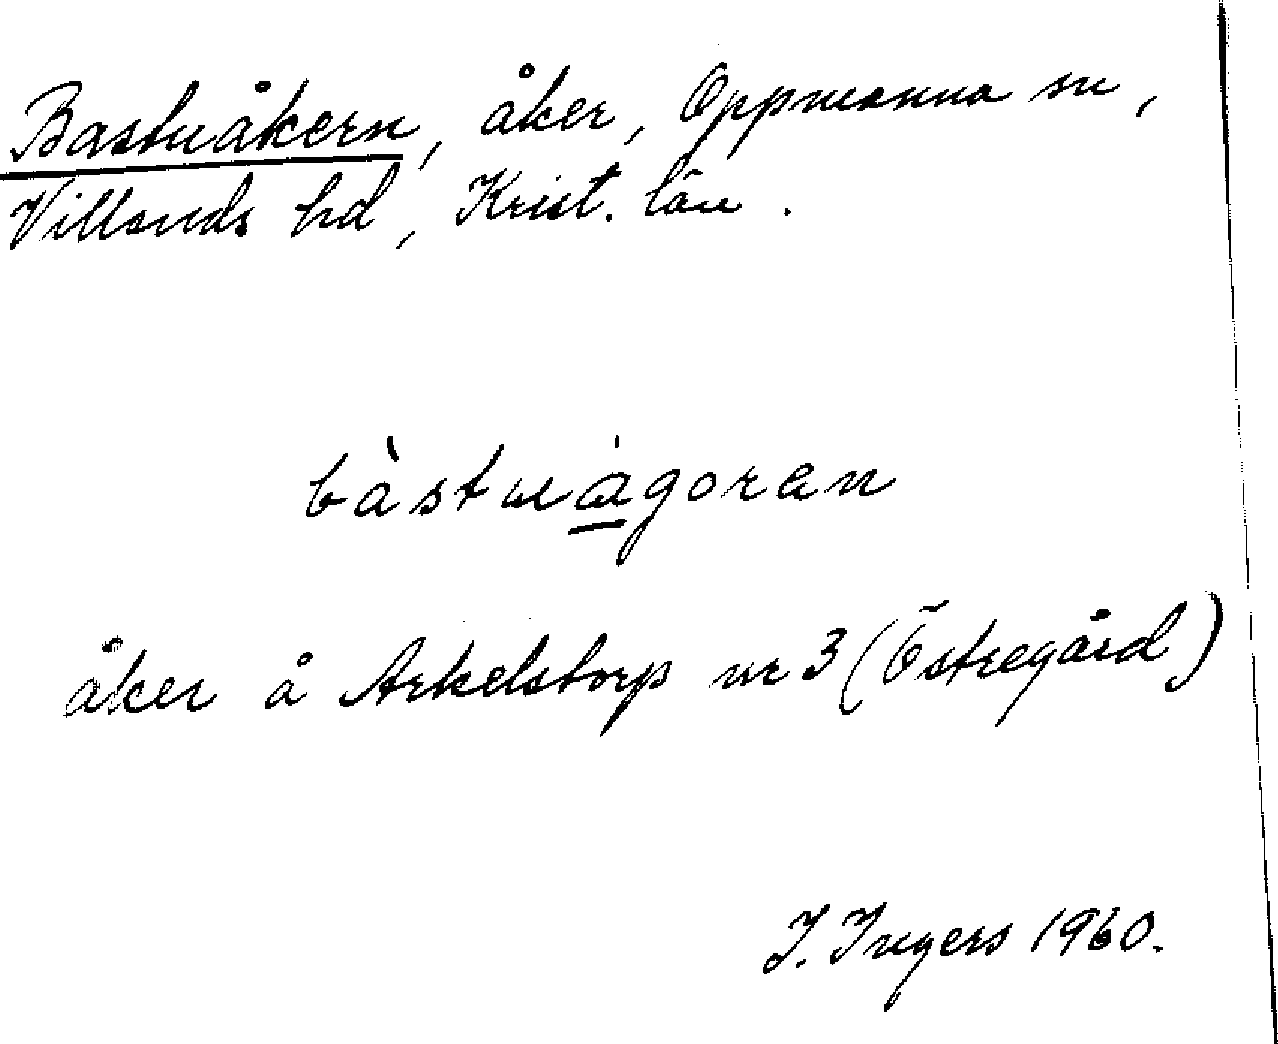 Bastuåkern, åker, Oppmanna sn,
Villands hd, Krist. län.
bàstuágoran
åker å Arkelstorp nr 3 (Östregård)
I. Ingers 1960.